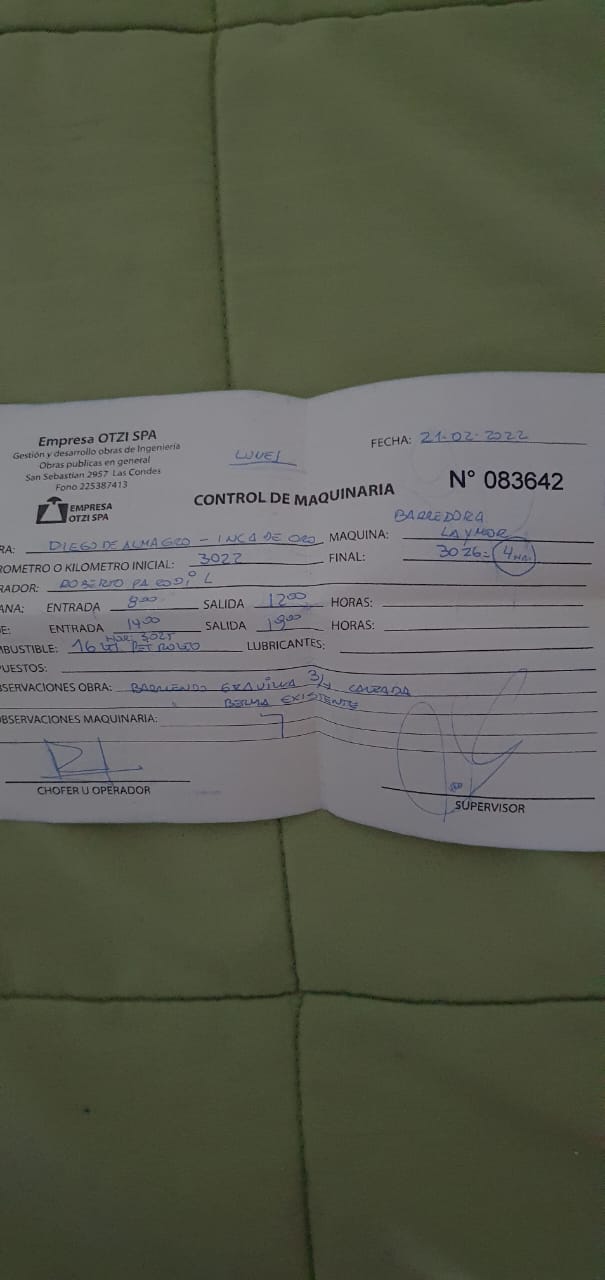 Empresa OTZI SPA
Gestión y desarrollo obras de Ingeniería
Obras publicas en general
San Sebastian 2957 Las Condes
Fono 225387413
EMPRESA
OTZI SPA
LUNES
FECHA: 21-02-2022
CONTROL DE MAQUINARIA
N° 083642
BARREDORA
RA: DIEGO DE ALMAGRO - INCA DE ORO MAQUINA: LAYMOR
ROMETRO O KILOMETRO INICIAL: 3022 FINAL: 3026= 4 HR.
RADOR: ROBERTO PARODI L
ANA: ENTRADA 800 SALIDA 1200 HORAS:
E: ENTRADA 1400 SALIDA 1900 HORAS:
HOR: 3025
MBUSTIBLE: 16 LT. PETROLEO LUBRICANTES:
PUESTOS:
SERVACIONES OBRA: BARRIENDO GRAVILLA 3/4 CALZADA
BERMA EXISTENTE
OBSERVACIONES MAQUINARIA:
CHOFER U OPERADOR
SUPERVISOR